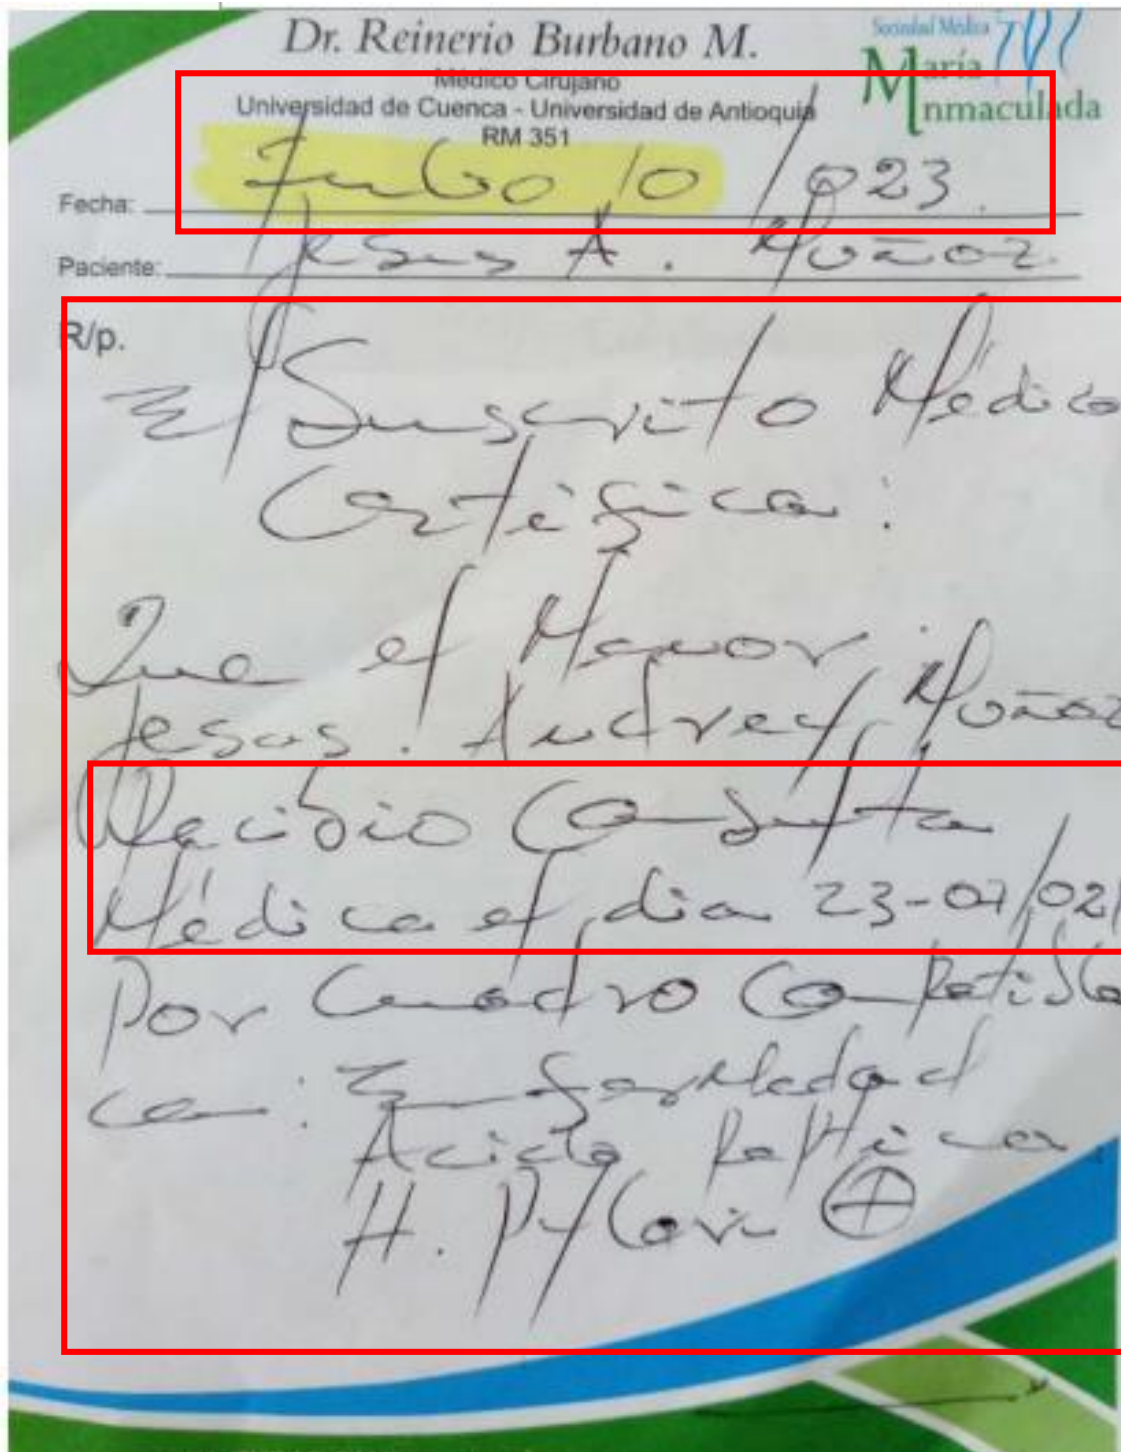 Dr. Reinerio Burbano M.
Médico Cirujano
Universidad de Cuenca - Universidad de Antioquia
RM 351
Sociedad Médica
María
Inmaculada
Fecha: Julio 10/023
Paciente: Jesus A. Muñoz
R/p.
El Suscrito Médico
Certifica:
Que el Menor
Jesus. Andrey Muñoz
Recibio Consulta
Médica el dia 23-07/021
Por Cuadro Compatible
con: Enfermedad
Acido Peptica
H. Pylori ⊕